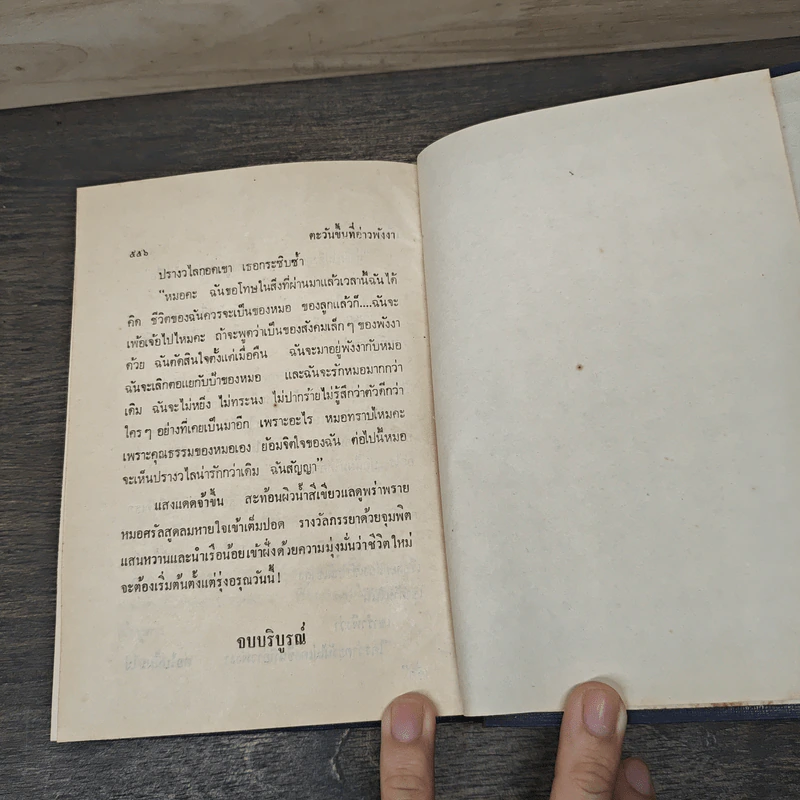 ๕๕๖
ตะวันขึ้นที่อ่าวพังงา
ปรางวไลกอดเขา เธอกระซิบซ้ำ
"หมอคะ ฉันขอโทษในสิ่งที่ผ่านมาแล้วเวลานี้ฉันได้
คิด ชีวิตของฉันควรจะเป็นของหมอ ของลูกแล้วก็....ฉันจะ
เพ้อเจ้อไปไหมคะ ถ้าจะพูดว่าเป็นของสังคมเล็กๆ ของพังงา
ด้วย ฉันตัดสินใจตั้งแต่เมื่อคืน ฉันจะมาอยู่พังงากับหมอ
ฉันจะเลิกตอแยกับป๊าของหมอ และฉันจะรักหมอมากกว่า
เดิม ฉันจะไม่หยิ่ง ไม่ทระนง ไม่ปากร้ายไม่รู้สึกว่าตัวดีกว่า
ใครๆ อย่างที่เคยเป็นมาอีก เพราะอะไร หมอทราบไหมคะ
เพราะคุณธรรมของหมอเอง ย้อมจิตใจของฉัน ต่อไปนี้หมอ
จะเห็นปรางวไลน่ารักกว่าเดิม ฉันสัญญา"
แสงแดดจ้าขึ้น สะท้อนผิวน้ำสีเขียวแลดูพร่าพราย
หมอศรัลสูดลมหายใจเข้าเต็มปอด รางวัลภรรยาด้วยจุมพิต
แสนหวานและนำเรือน้อยเข้าฝั่งด้วยความมุ่งมั่นว่าชีวิตใหม่
จะต้องเริ่มต้นตั้งแต่รุ่งอรุณวันนี้!
จบบริบูรณ์